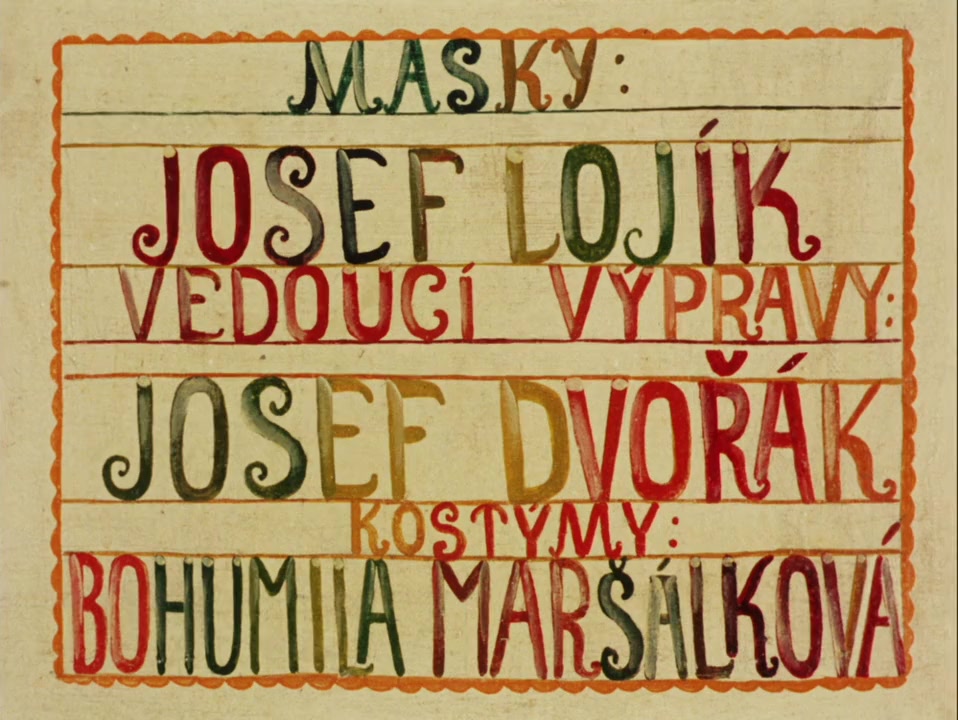 MASKY:
JOSEF LOJÍK
VEDOUCÍ VÝPRAVY:
JOSEF DVOŘÁK
KOSTÝMY:
BOHUMILA MARŠÁLKOVÁ